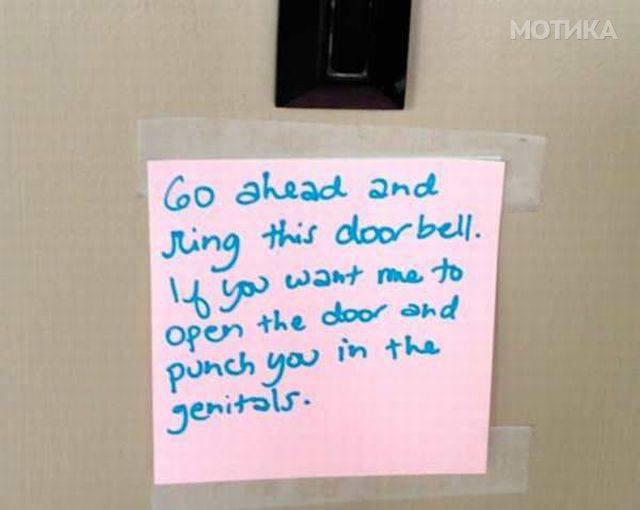 МОТИКА
Go ahead and
ring this doorbell.
If you want me to
open the door and
punch you in the
genitals.